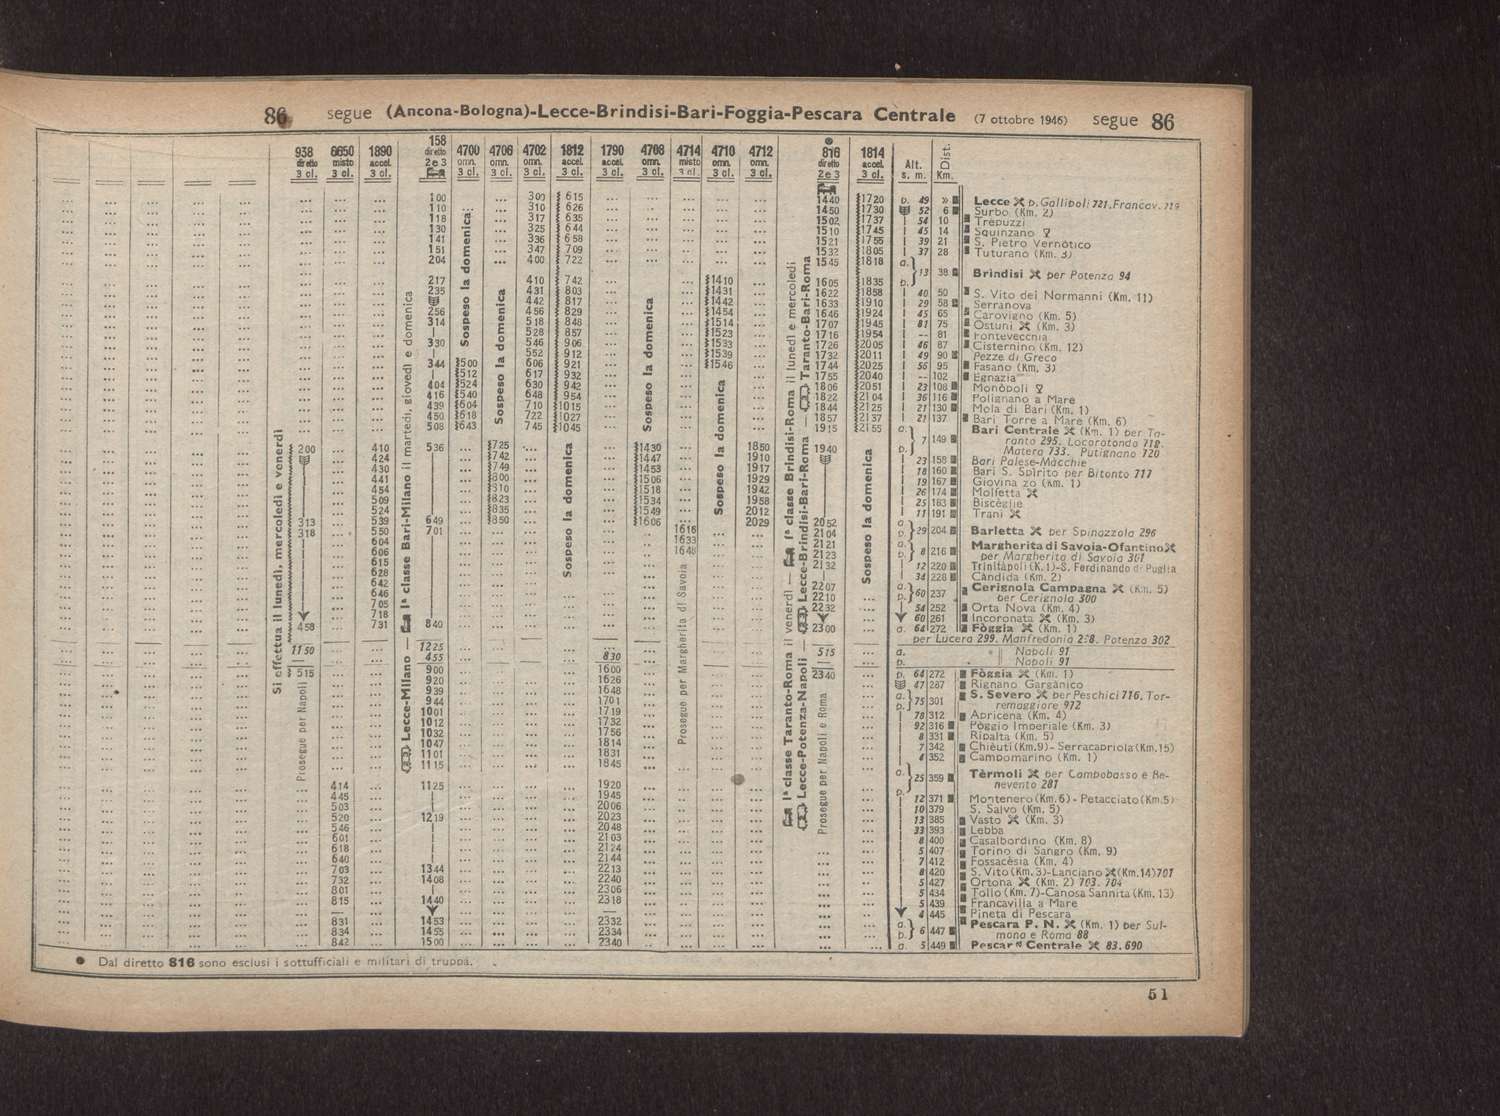 86 segue (Ancona-Bologna)-Lecce-Brindisi-Bari-Foggia-Pescara Centrale (7 ottobre 1946) segue 86
938 6650 1890 158 4700 4706 4702 1812 1790 4708 4714 4710 4712 816 1814
diretto misto accel. diretto omn. omn. omn. accel. accel. omn. misto omn. omn. diretto accel. Alt. Dist.
3 cl. 3 cl. 3 cl. 2 e 3 3 cl. 3 cl. 3 cl. 3 cl. 3 cl. 3 cl. 3 cl. 3 cl. 3 cl. 2 e 3 3 cl. s. m. Km.
100 300 615 1440 1720 p. 49 » Lecce p. Gallipoli 721, Francav. 719
110 310 626 1450 1730 52 6 Surbo (Km. 2)
118 317 635 1502 1737 54 10 Trepuzzi
130 325 644 1510 1745 45 14 Squinzano
141 336 658 1521 1755 39 21 S. Pietro Vernòtico
151 347 709 1532 1805 37 28 Tuturano (Km. 3)
204 400 722 1545 1818 a.
13 38 Brindisi per Potenza 94
217 410 742 1410 1605 1835 p.
235 431 803 1431 1622 1858 40 50 S. Vito dei Normanni (Km. 11)
442 817 1442 1633 1910 29 58 Serranova
256 456 829 1454 1646 1924 45 65 Carovigno (Km. 5)
314 518 848 1514 1707 1945 81 75 Ostuni (Km. 3)
528 857 1523 1716 1954 -- 81 Fontevecchia
330 546 906 1533 1726 2005 46 87 Cisternino (Km. 12)
552 912 1539 1732 2011 49 90 Pezze di Greco
344 500 606 921 1546 1744 2025 56 95 Fasano (Km. 3)
512 617 932 1755 2040 -- 102 Egnazia
404 524 630 942 1806 2051 23 108 Monòpoli
416 540 648 954 1822 2104 36 116 Polignano a Mare
439 604 710 1015 1844 2125 21 130 Mola di Bari (Km. 1)
450 618 722 1027 1857 2137 21 137 Bari Torre a Mare (Km. 6)
508 643 745 1045 1915 2155 a. Bari Centrale (Km. 1) per Ta-
7 149 ranto 295. Locorotondo 718.
200 410 536 725 1430 1850 1940 p. Matera 733. Putignano 720
424 742 1447 1910 23 158 Bari Palese-Màcchie
430 749 1453 1917 18 160 Bari S. Spìrito per Bitonto 717
441 800 1506 1929 19 167 Giovinazzo (Km. 1)
454 810 1518 1942 26 174 Molfetta
509 823 1534 1958 25 183 Biscèglie
524 835 1549 2012 11 191 Trani
313 539 649 850 1606 2029 2052 a.
318 550 701 1616 2104 p. 29 204 Barletta per Spinazzola 296
604 1633 2121 a. Margherita di Savoia-Ofantino
606 1648 2123 p. 8 216 per Margherita di Savoia 301
615 2132 12 220 Trinitàpoli (K. 1)-S. Ferdinando di Puglia
628 34 228 Càndida (Km. 2)
642 2207 a. Cerignola Campagna (Km. 5)
646 2210 p. 60 237 per Cerignola 300
705 2232 54 252 Orta Nova (Km. 4)
718 60 261 Incoronata (Km. 3)
458 731 840 2300 a. 64 272 Fòggia (Km. 1)
per Lucera 299. Manfredonia 298. Potenza 302
1150 1225 515 a. Napoli 91
455 830 p. Napoli 91
515 900 1600 2340 p. 64 272 Fòggia (Km. 1)
920 1626 47 287 Rignano Gargànico
939 1648 a. S. Severo per Peschici 716. Tor-
944 1701 p. 75 301 remaggiore 972
1001 1719 78 312 Apricena (Km. 4)
1012 1732 92 316 Pòggio Imperiale (Km. 3)
1032 1756 8 331 Ripalta (Km. 5)
1047 1814 7 342 Chièuti (Km. 9)- Serracapriola (Km. 15)
1101 1831 4 352 Campomarino (Km. 1)
1115 1845 a.
25 359 Tèrmoli per Campobasso e Be-
414 1125 1920 p. nevento 281
445 1945 12 371 Montenero (Km. 6) - Petacciato (Km. 5)
503 2006 10 379 S. Salvo (Km. 5)
520 1219 2023 13 385 Vasto (Km. 3)
546 2048 33 393 Lebba
601 2103 8 400 Casalbordino (Km. 8)
618 2124 5 407 Torino di Sangro (Km. 9)
640 2144 7 412 Fossacèsia (Km. 4)
703 1344 2213 8 420 S. Vito (Km. 3)-Lanciano (Km. 14) 707
732 1408 2240 5 427 Ortona (Km. 2) 703. 704
801 2306 5 434 Tollo (Km. 7)-Canosa Sannita (Km. 13)
815 1440 2318 5 439 Francavilla a Mare
4 445 Pineta di Pescara
831 1453 2332 a. Pescara P. N. (Km. 1) per Sul-
834 1455 2334 p. 6 447 mona e Roma 88
842 1500 2340 a. 5 449 Pescara Centrale 83. 690
Si effettua il lunedì, mercoledì e venerdì
Prosegue per Napoli
Lecce-Milano — 1ª classe Bari-Milano il martedì, giovedì e domenica
Sospeso la domenica
Sospeso la domenica
Sospeso la domenica
Sospeso la domenica
Prosegue per Margherita di Savoia
Sospeso la domenica
1ª classe Taranto-Roma il venerdì — 1ª classe Brindisi-Roma il lunedì e mercoledì
Lecce-Potenza-Napoli — Lecce-Brindisi-Bari-Roma — Taranto-Bari-Roma
Prosegue per Napoli e Roma
Sospeso la domenica
● Dal diretto 816 sono esclusi i sottufficiali e militari di truppa.
51